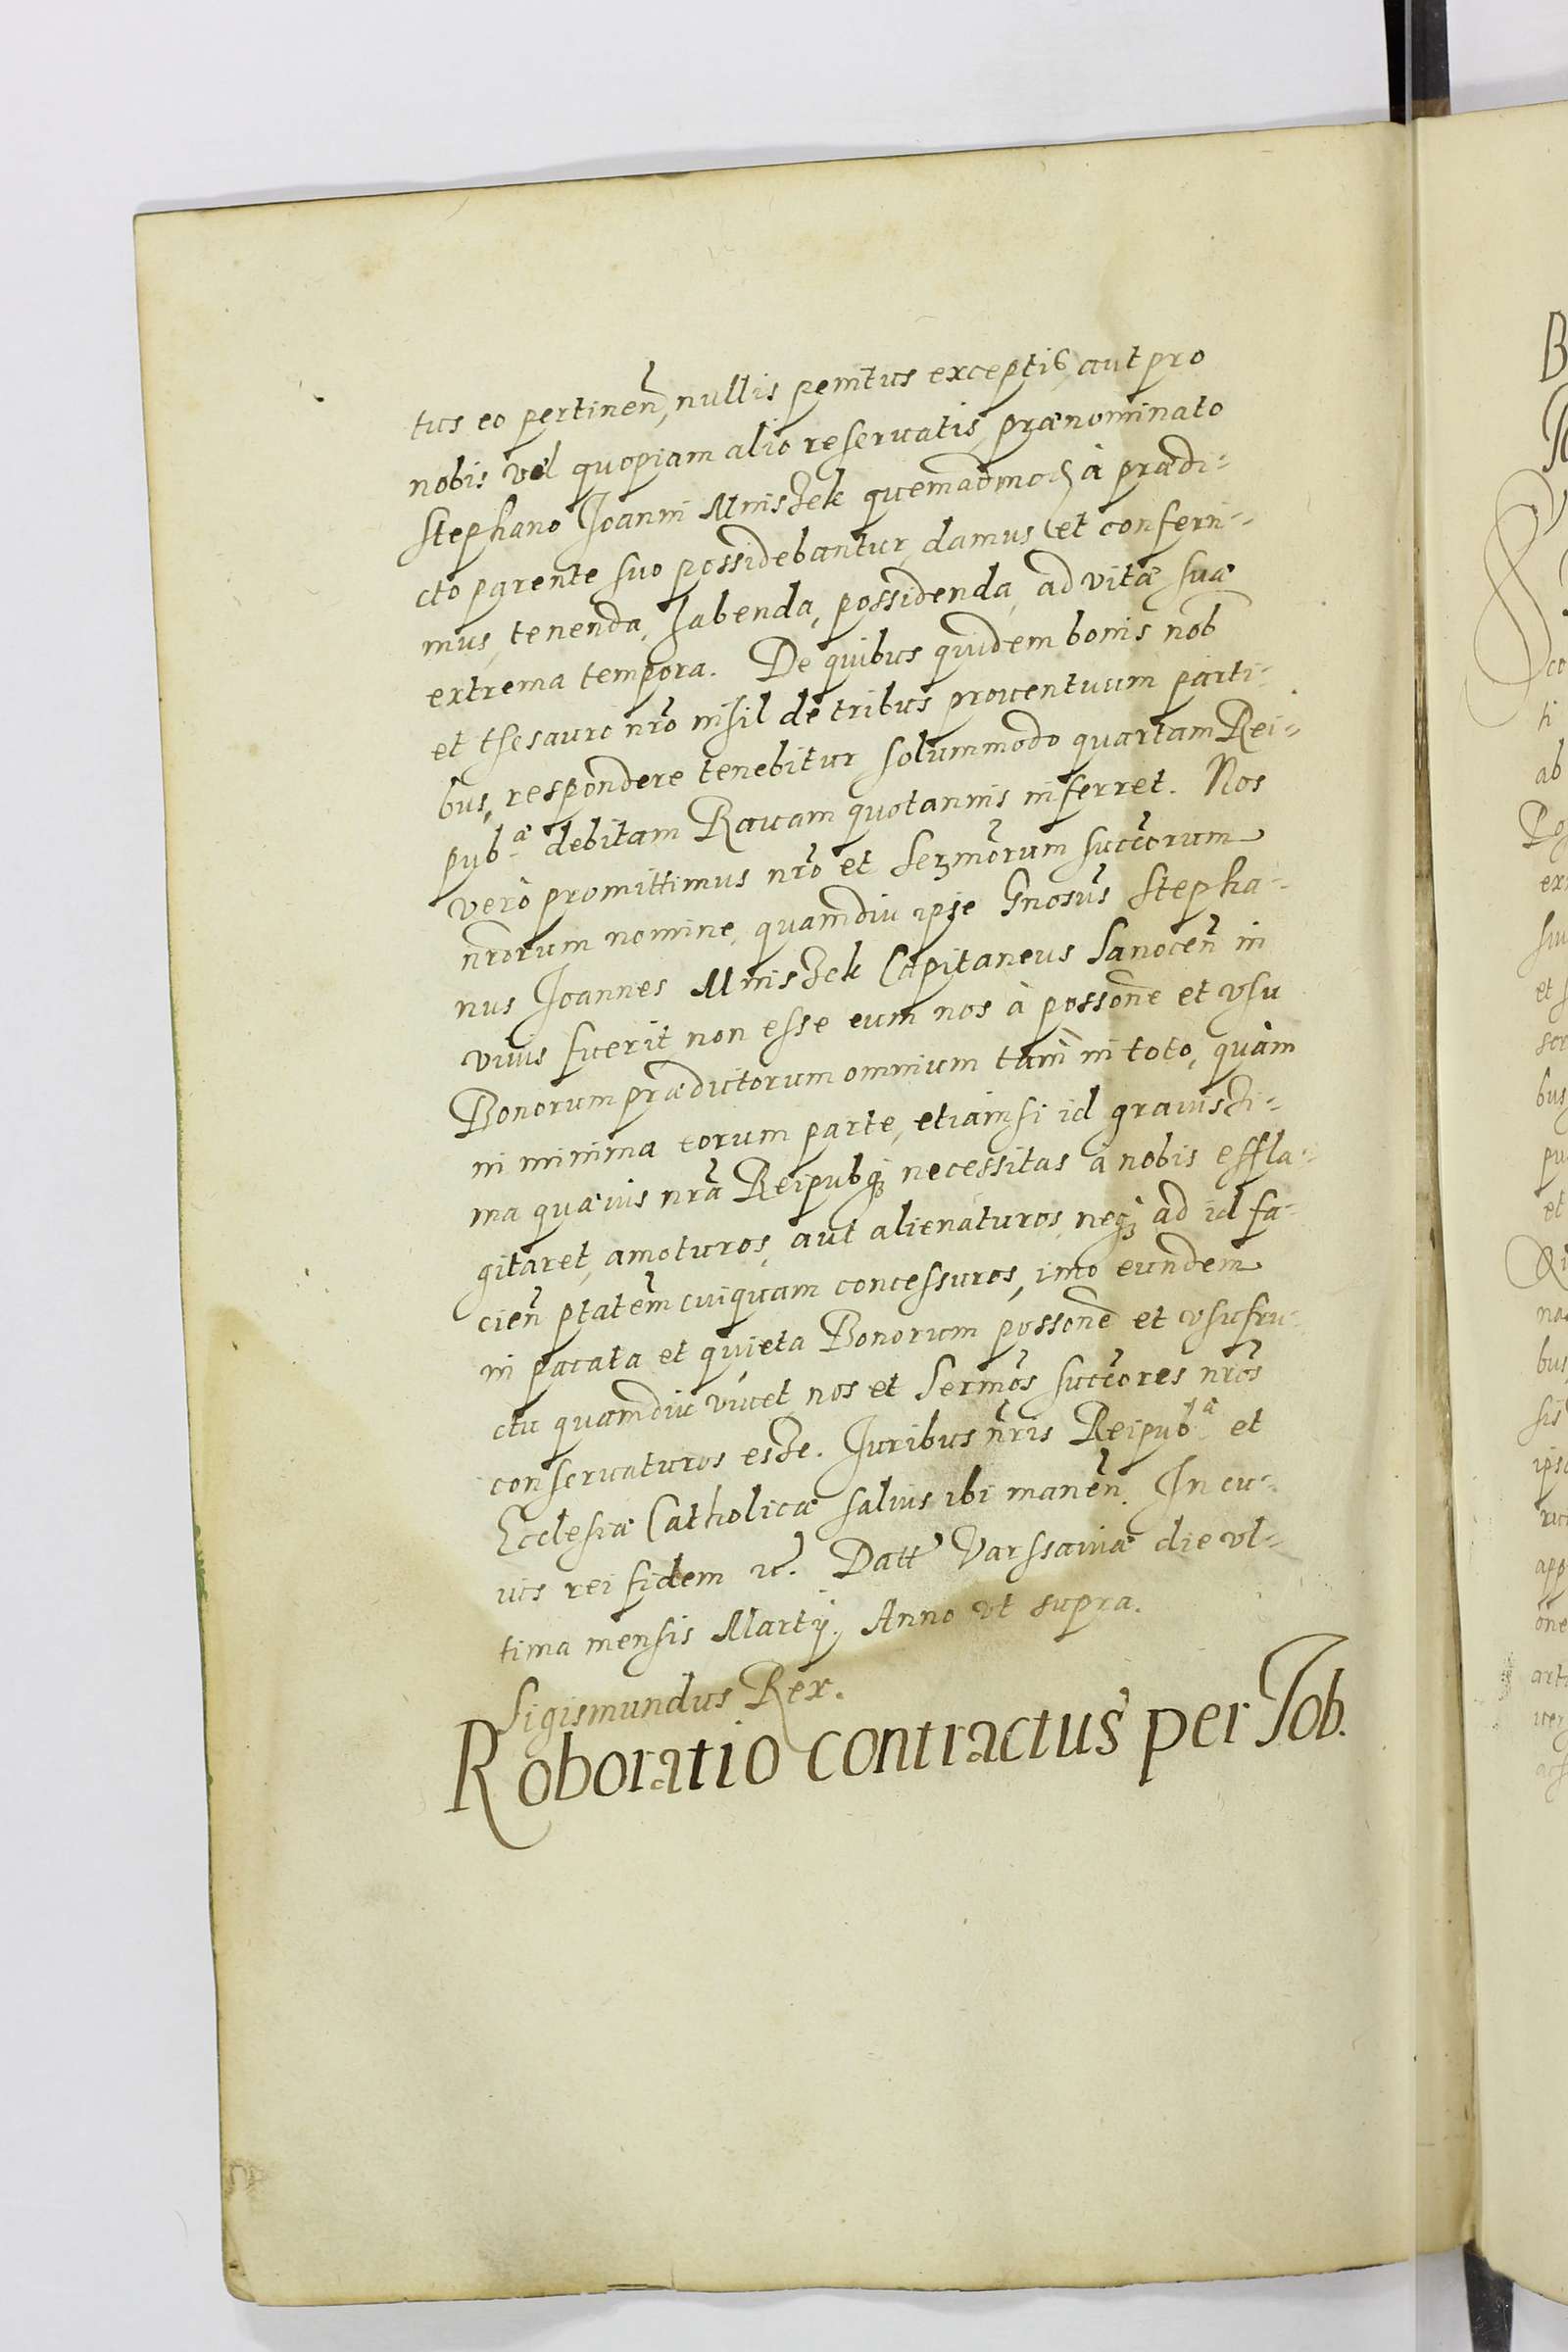 tus eo pertineñ, nullis penitus exceptis, aut pro
nobis vel quopiam alio reseruatis, prænominato
Stephano Joanni Mniszek quemadmod à prædi-
cto parente suo possidebantur, damus et conferi-
mus, tenenda, habenda, possidenda, ad vitæ suæ
extrema tempora. De quibus quidem bonis nob
et thesauro nr̃o nihil de tribus prouentuum parti-
bus, respondere tenebitur solummodo quartam Rei-
pubᶜᵃ debitam Rauam quotannis inferret. Nos
verò promittimus nr̃o et Sermõrum succorum
nr̃orum nomine, quamdiu ipse Gnosus Stepha-
nus Joannes Mniszek Capitaneus Sanoceñ in
viuis fuerit non esse eum nos à possone et vsu
Bonorum prædictorum omnium tam in toto, quàm
in minima eorum parte, etiamsi id grauissi-
ma quæuis nr̃a Reipubq; necessitas à nobis effla-
gitaret, amoturos, aut alienaturos, neq; ad id fa-
cieñ ptatem cuiquam concessuros, imo eundem
in pacata et quieta Bonorum possone et vsufru-
ctu quamdiu viuet, nos et Sermõs succores nr̃os
conseruaturos esse. Juribus nr̃is Reipubᶜᵃ et
Ecclesiæ Catholicæ saluis ibi maneñ. In cu-
ius rei fidem etc. Datt Varssauiæ die vl-
tima mensis Martij. Anno vt supra.
Sigismundus Rex.
Roboratio contractus per Job.